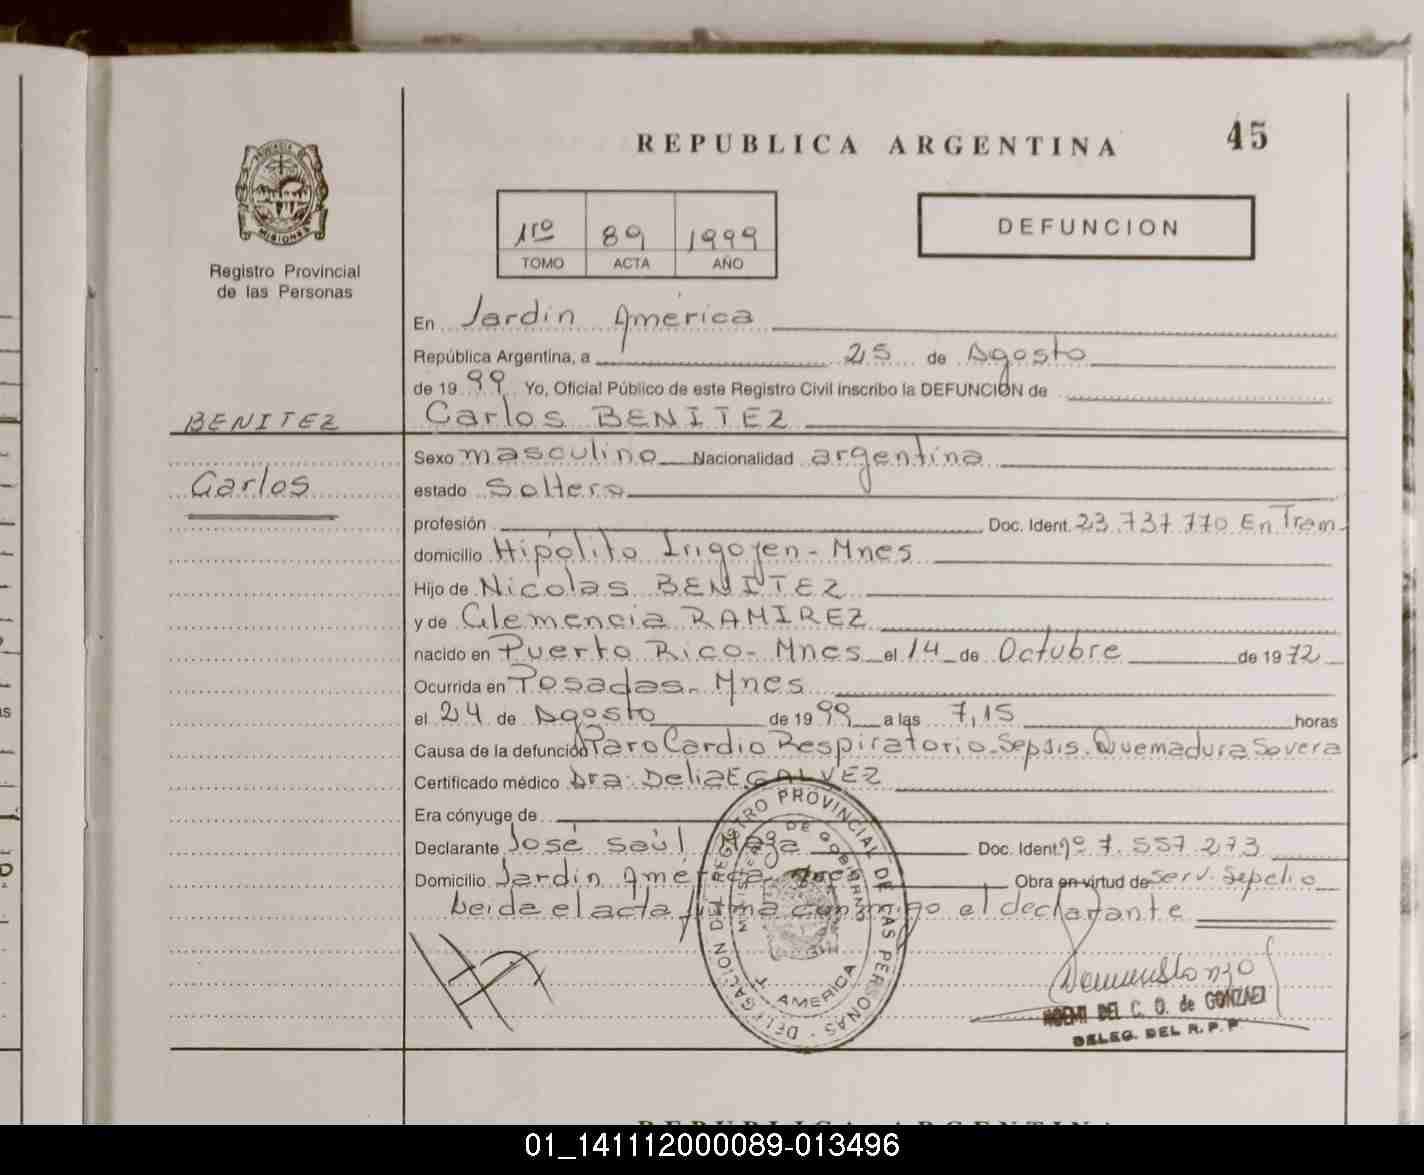 REPUBLICA ARGENTINA
45
PROVINCIA DE
MISIONES
Registro Provincial
de las Personas
1ro 89 1999
TOMO ACTA AÑO
DEFUNCION
En Jardin América
República Argentina, a 25 de Agosto
de 1999 Yo, Oficial Público de este Registro Civil inscribo la DEFUNCIÓN de
BENITEZ
Carlos BENITEZ
Carlos
Sexo masculino Nacionalidad argentina
estado Soltero
profesión Doc. Ident. 23.737.770 En Tram.
domicilio Hipólito Irigoyen - Mnes
Hijo de Nicolas BENITEZ
y de Clemencia RAMIREZ
nacido en Puerto Rico - Mnes el 14 de Octubre de 1972
Ocurrida en Posadas - Mnes
el 24 de Agosto de 1999 a las 7,15 horas
Causa de la defunción Paro Cardio Respiratorio. Sepsis. Quemadura Severa
Certificado médico Dra. Delia E GALVEZ
Era cónyuge de
Declarante José Saúl Doc. Ident. nº 7.557.273
Domicilio Jardin América Obra en virtud de Serv. Sepelio
Leida el acta firma conmigo el declarante
DELEGACION DEL REGISTRO PROVINCIAL DE LAS PERSONAS
MINISTERIO DE GOBIERNO
J. AMERICA
NOEMI DEL C. O. de GONZALEZ
DELEG. DEL R. P. P.
REPUBLICA ARGENTINA
01_141112000089-013496